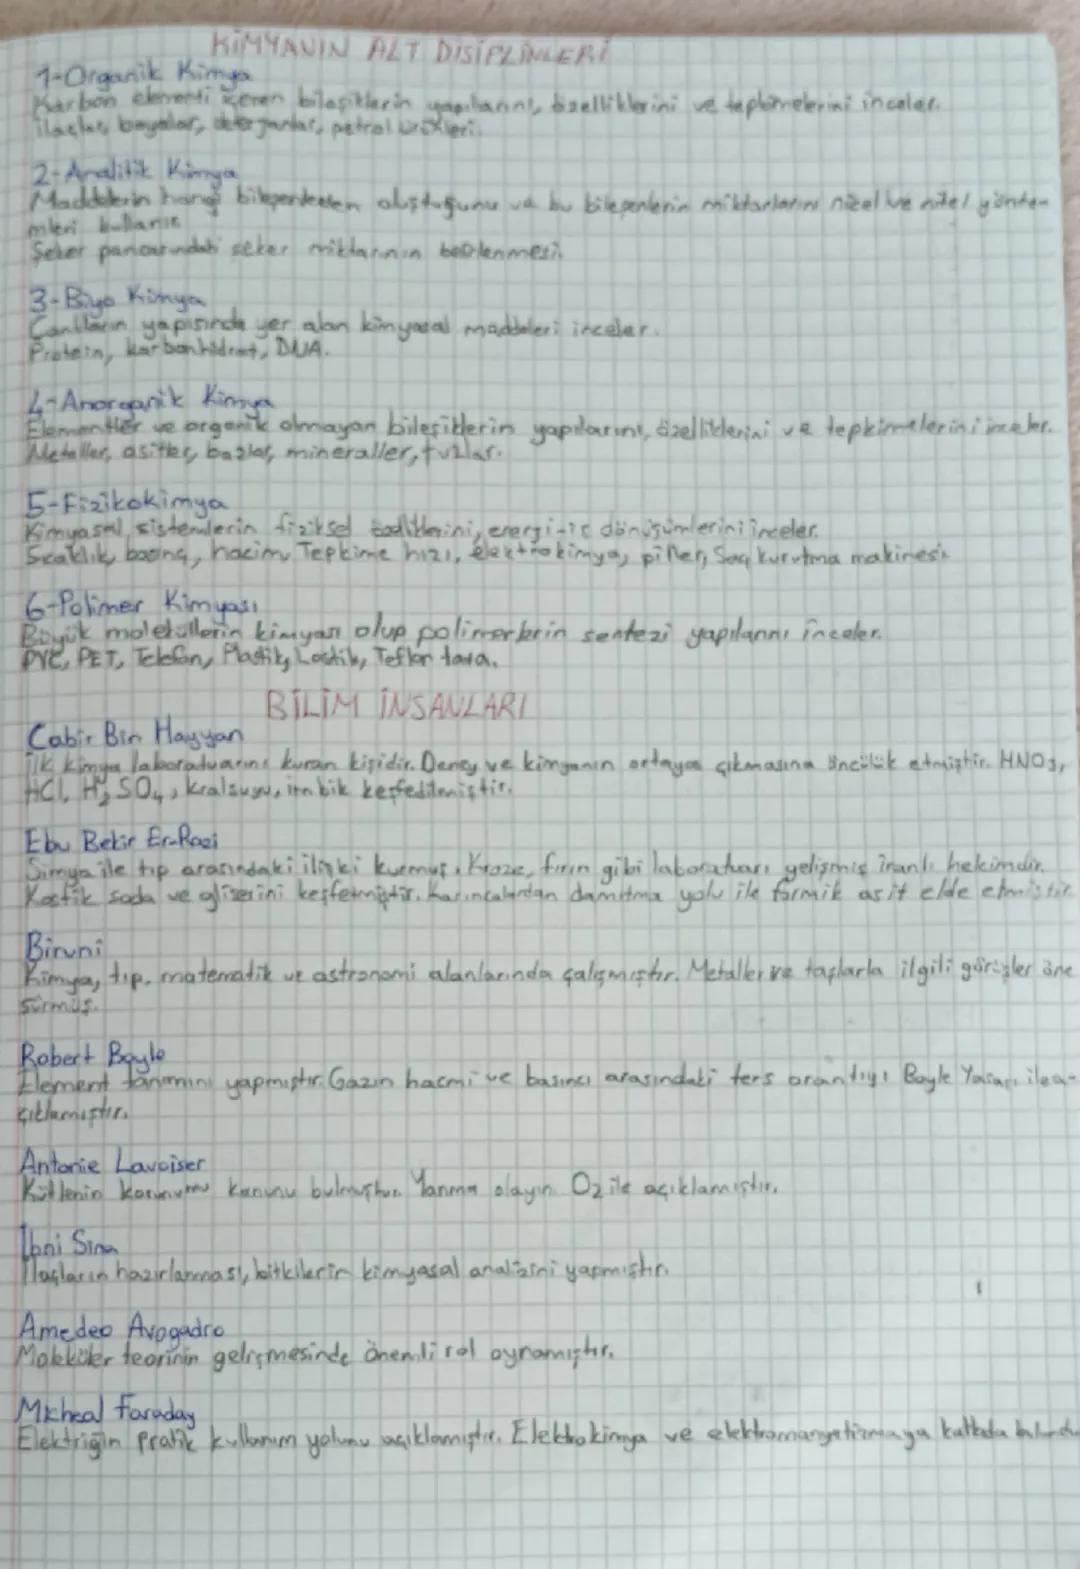 KİMYANIN ALT DİSİPLİNLERİ
1-Organik Kimya
Karbon elementi içeren bileşiklerin yapılarını, özelliklerini ve tepkimelerini inceler.
İlaçlar, boyalar, deterjanlar, petrol ürünleri.
2-Analitik Kimya
Maddelerin hangi bileşenlerden oluştuğunu ve bu bileşenlerin miktarlarını nicel ve nitel yönte-
mleri kullanır.
Şeker pancarındaki şeker miktarının belirlenmesi.
3-Biyo Kimya
Canlıların yapısında yer alan kimyasal maddeleri inceler.
Protein, karbonhidrat, DNA.
4-Anorganik Kimya
Elementler ve organik olmayan bileşiklerin yapılarını, özelliklerini ve tepkimelerini inceler.
Metaller, asitler, bazlar, mineraller, tuzlar.
5-Fizikokimya
Kimyasal sistemlerin fiziksel özelliklerini, enerji-ıs dönüşümlerini inceler.
Sıcaklık, basınç, hacim, Tepkime hızı, elektrokimya, piller, Saç kurutma makinesi.
6-Polimer Kimyası
Büyük moleküllerin kimyası olup polimerlerin sentezi yapılarını inceler.
PVC, PET, Telefon, Plastik, Lastik, Teflon tava.
BİLİM İNSANLARI
Cabir Bin Hayyan
İlk kimya laboratuarını kuran kişidir. Deney ve kimyanın ortaya çıkmasına öncülük etmiştir. HNO3,
HCl, H2SO4, kralsuyu, imbik keşfedilmiştir.
Ebu Bekir Er-Razi
Simya ile tıp arasındaki ilişki kurmuş. Kroze, fırın gibi laboratuarı gelişmiş İranlı hekimdir.
Kostik soda ve gliserini keşfetmiştir. Karıncalardan damıtma yolu ile formik asit elde etmiştir.
Biruni
Kimya, tıp, matematik ve astronomi alanlarında çalışmıştır. Metaller ve taşlarla ilgili görüşler öne
sürmüş.
Robert Boyle
Element tanımını yapmıştır. Gazın hacmi ve basıncı arasındaki ters orantıyı Boyle Yasası ile a-
çıklamıştır.
Antonie Lavoiser
Kütlenin korunumu kanunu bulmuştur. Yanma olayın O2 ile açıklamıştır.
İbni Sina
İlaçların hazırlanması, bitkilerin kimyasal analizini yapmıştır.
Amedeo Avogadro
Moleküler teorinin gelişmesinde önemli rol oynamıştır.
Micheal Faraday
Elektriğin pratik kullanım yolunu açıklamıştır. Elektrokimya ve elektromanyetizmaya katkıda